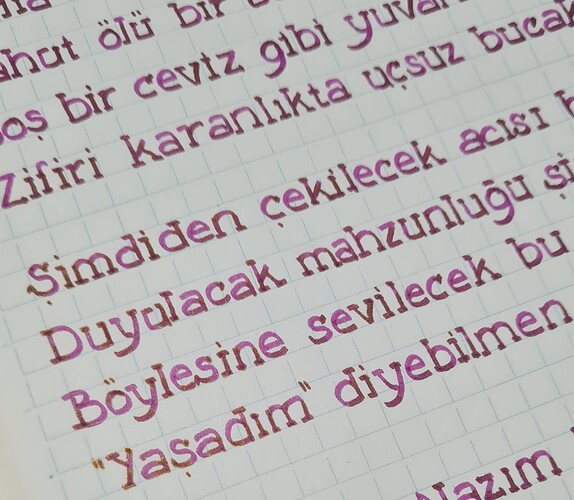 ölü bir
boş bir ceviz gibi
Zifiri karanlıkta uçsuz bucak
Şimdiden çekilecek acısı b
Duyulacak mahzunluğu şi
Böylesine sevilecek bu
"Yaşadım" diyebilmen
Nazım